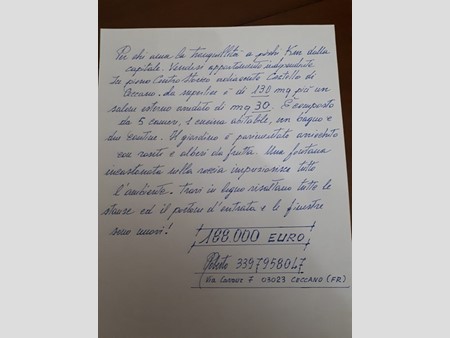 Per chi ama la tranquillità a pochi Km dalla
capitale. Vendesi appartamento indipendente
In pieno Centro Storico nel Castello di
Ceccano. La superficie è di 130 mq più un
salone esterno arredato di mq 30. È composto
da 5 camere, 1 cucina abitabile, un bagno e
due cantine. Il giardino è pavimentato arricchito
con rosete e alberi da frutta. Una fontana
incastonata nella roccia impreziosisce tutto
l'ambiente. Travi in legno risaltano tutte le
stanze ed il portone d'entrata e le finestre
sono nuovi!
188.000 EURO
3397958047
Via Cavour 7 03023 CECCANO (FR)